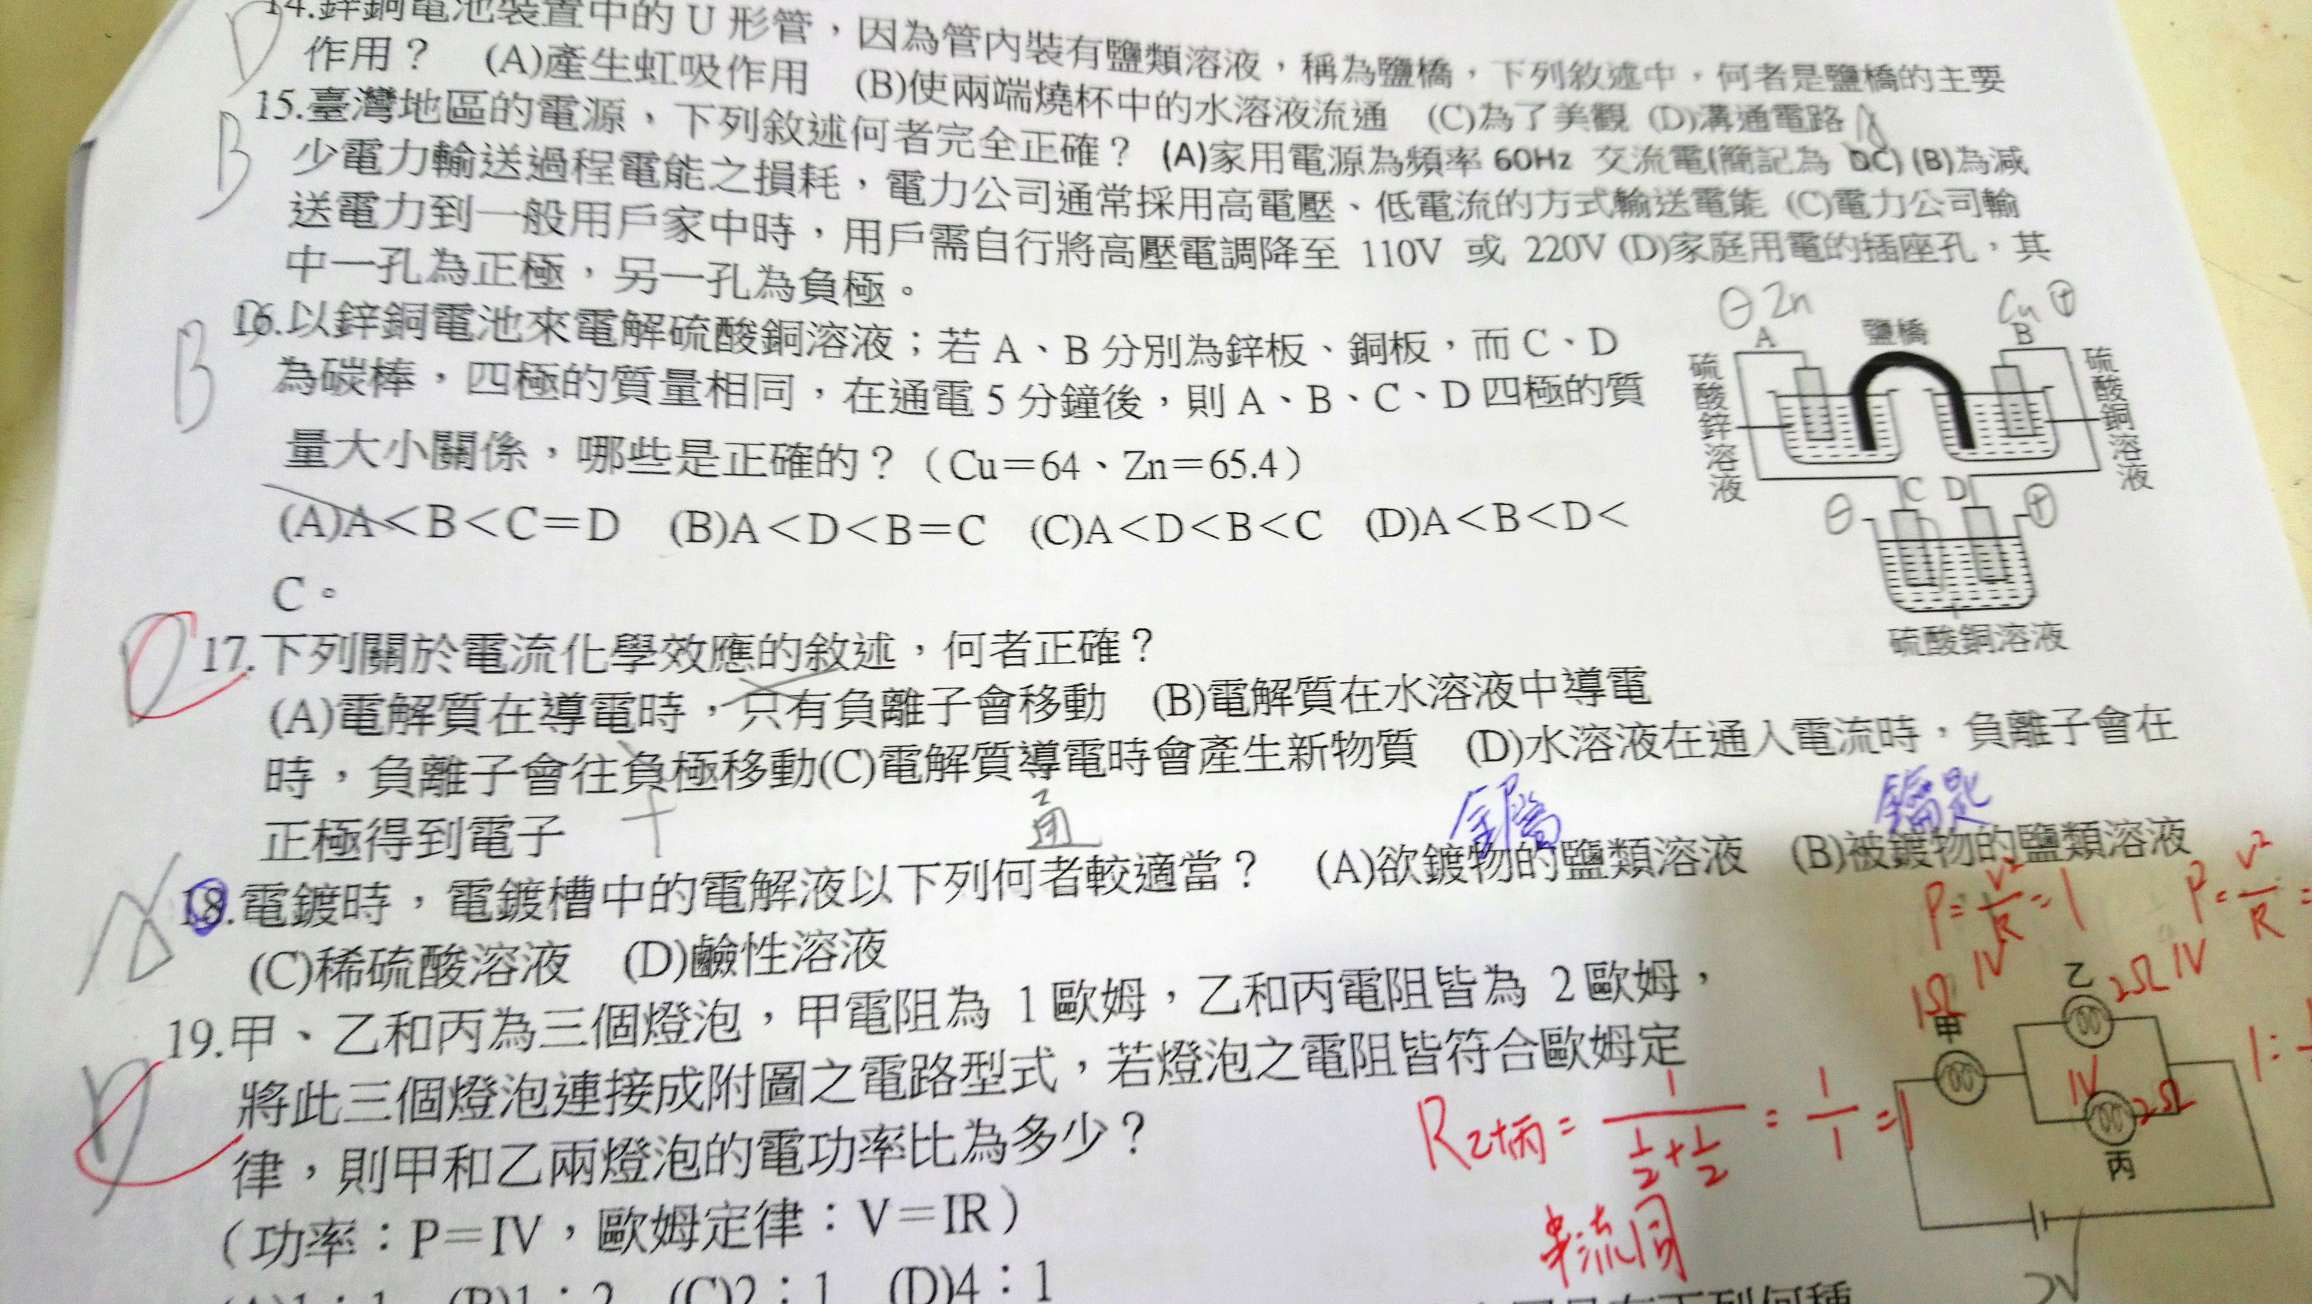 14.鋅銅電池裝置中的 U 形管，因為管內裝有鹽類溶液，稱為鹽橋，下列敘述中，何者是鹽橋的主要
D
作用？ (A)產生虹吸作用 (B)使兩端燒杯中的水溶液流通 (C)為了美觀 (D)溝通電路
15.臺灣地區的電源，下列敘述何者完全正確？ (A)家用電源為頻率 60Hz 交流電(簡記為 DC) (B)為減
B
少電力輸送過程電能之損耗，電力公司通常採用高電壓、低電流的方式輸送電能 (C)電力公司輸
送電力到一般用戶家中時，用戶需自行將高壓電調降至 110V 或 220V (D)家庭用電的插座孔，其
中一孔為正極，另一孔為負極。
16.以鋅銅電池來電解硫酸銅溶液；若 A、B 分別為鋅板、銅板，而 C、D
B
為碳棒，四極的質量相同，在通電 5 分鐘後，則 A、B、C、D 四極的質
量大小關係，哪些是正確的？（Cu＝64、Zn＝65.4）
(A)A＜B＜C＝D (B)A＜D＜B＝C (C)A＜D＜B＜C (D)A＜B＜D＜
C。
⊖ Zn
Cu ⊕
A
鹽橋
B
硫酸鋅溶液
硫酸銅溶液
⊖ C D ⊕
硫酸銅溶液
17.下列關於電流化學效應的敘述，何者正確？
D
(A)電解質在導電時，只有負離子會移動 (B)電解質在水溶液中導電
時，負離子會往負極移動(C)電解質導電時會產生新物質 (D)水溶液在通入電流時，負離子會在
正極得到電子
＋
鑰匙
18.電鍍時，電鍍槽中的電解液以下列何者較適當？ (A)欲鍍物的鹽類溶液 (B)被鍍物的鹽類溶液
A
(C)稀硫酸溶液 (D)鹼性溶液
19.甲、乙和丙為三個燈泡，甲電阻為 1 歐姆，乙和丙電阻皆為 2 歐姆，
D
將此三個燈泡連接成附圖之電路型式，若燈泡之電阻皆符合歐姆定
律，則甲和乙兩燈泡的電功率比為多少？
（功率：P＝IV，歐姆定律：V＝IR）
(A)1：1 (B)1：2 (C)2：1 (D)4：1
P=V²/R=1
P=V²/R=
1Ω 1V
2Ω 1V
甲
乙
1V 2Ω
丙
1:
2V
R乙+丙=1/(1/2+1/2)=1/1=1
串流同